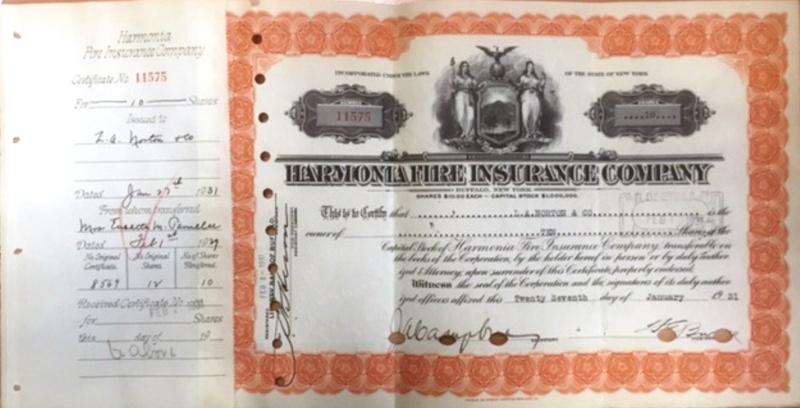 Harmonia
Fire Insurance Company
Certificate No. 11575
For 10 Shares
Issued to
L. A. Norton & Co
Dated Jan 27th 1931
From whom transferred
Mrs
Dated Feb 1st 19
No. Original Certificate.
No. Original Shares
No. of Shares Transferred.
8569
12
10
Received Certificate No.
for Shares
this day of 19
INCORPORATED UNDER THE LAWS
OF THE STATE OF NEW YORK
NUMBER
11575
SHARES
10
HARMONIA FIRE INSURANCE COMPANY
BUFFALO, NEW YORK
SHARES $10.00 EACH — CAPITAL STOCK $1,000,000.
This is to Certify that L. A. NORTON & CO. is the
owner of TEN Shares of the
Capital Stock of Harmonia Fire Insurance Company, transferable on
the books of the Corporation, by the holder hereof in person or by duly author-
ized Attorney, upon surrender of this Certificate properly endorsed.
Witness the seal of the Corporation and the signatures of its duly author-
ized officers affixed this Twenty Seventh day of January 1931
SECRETARY